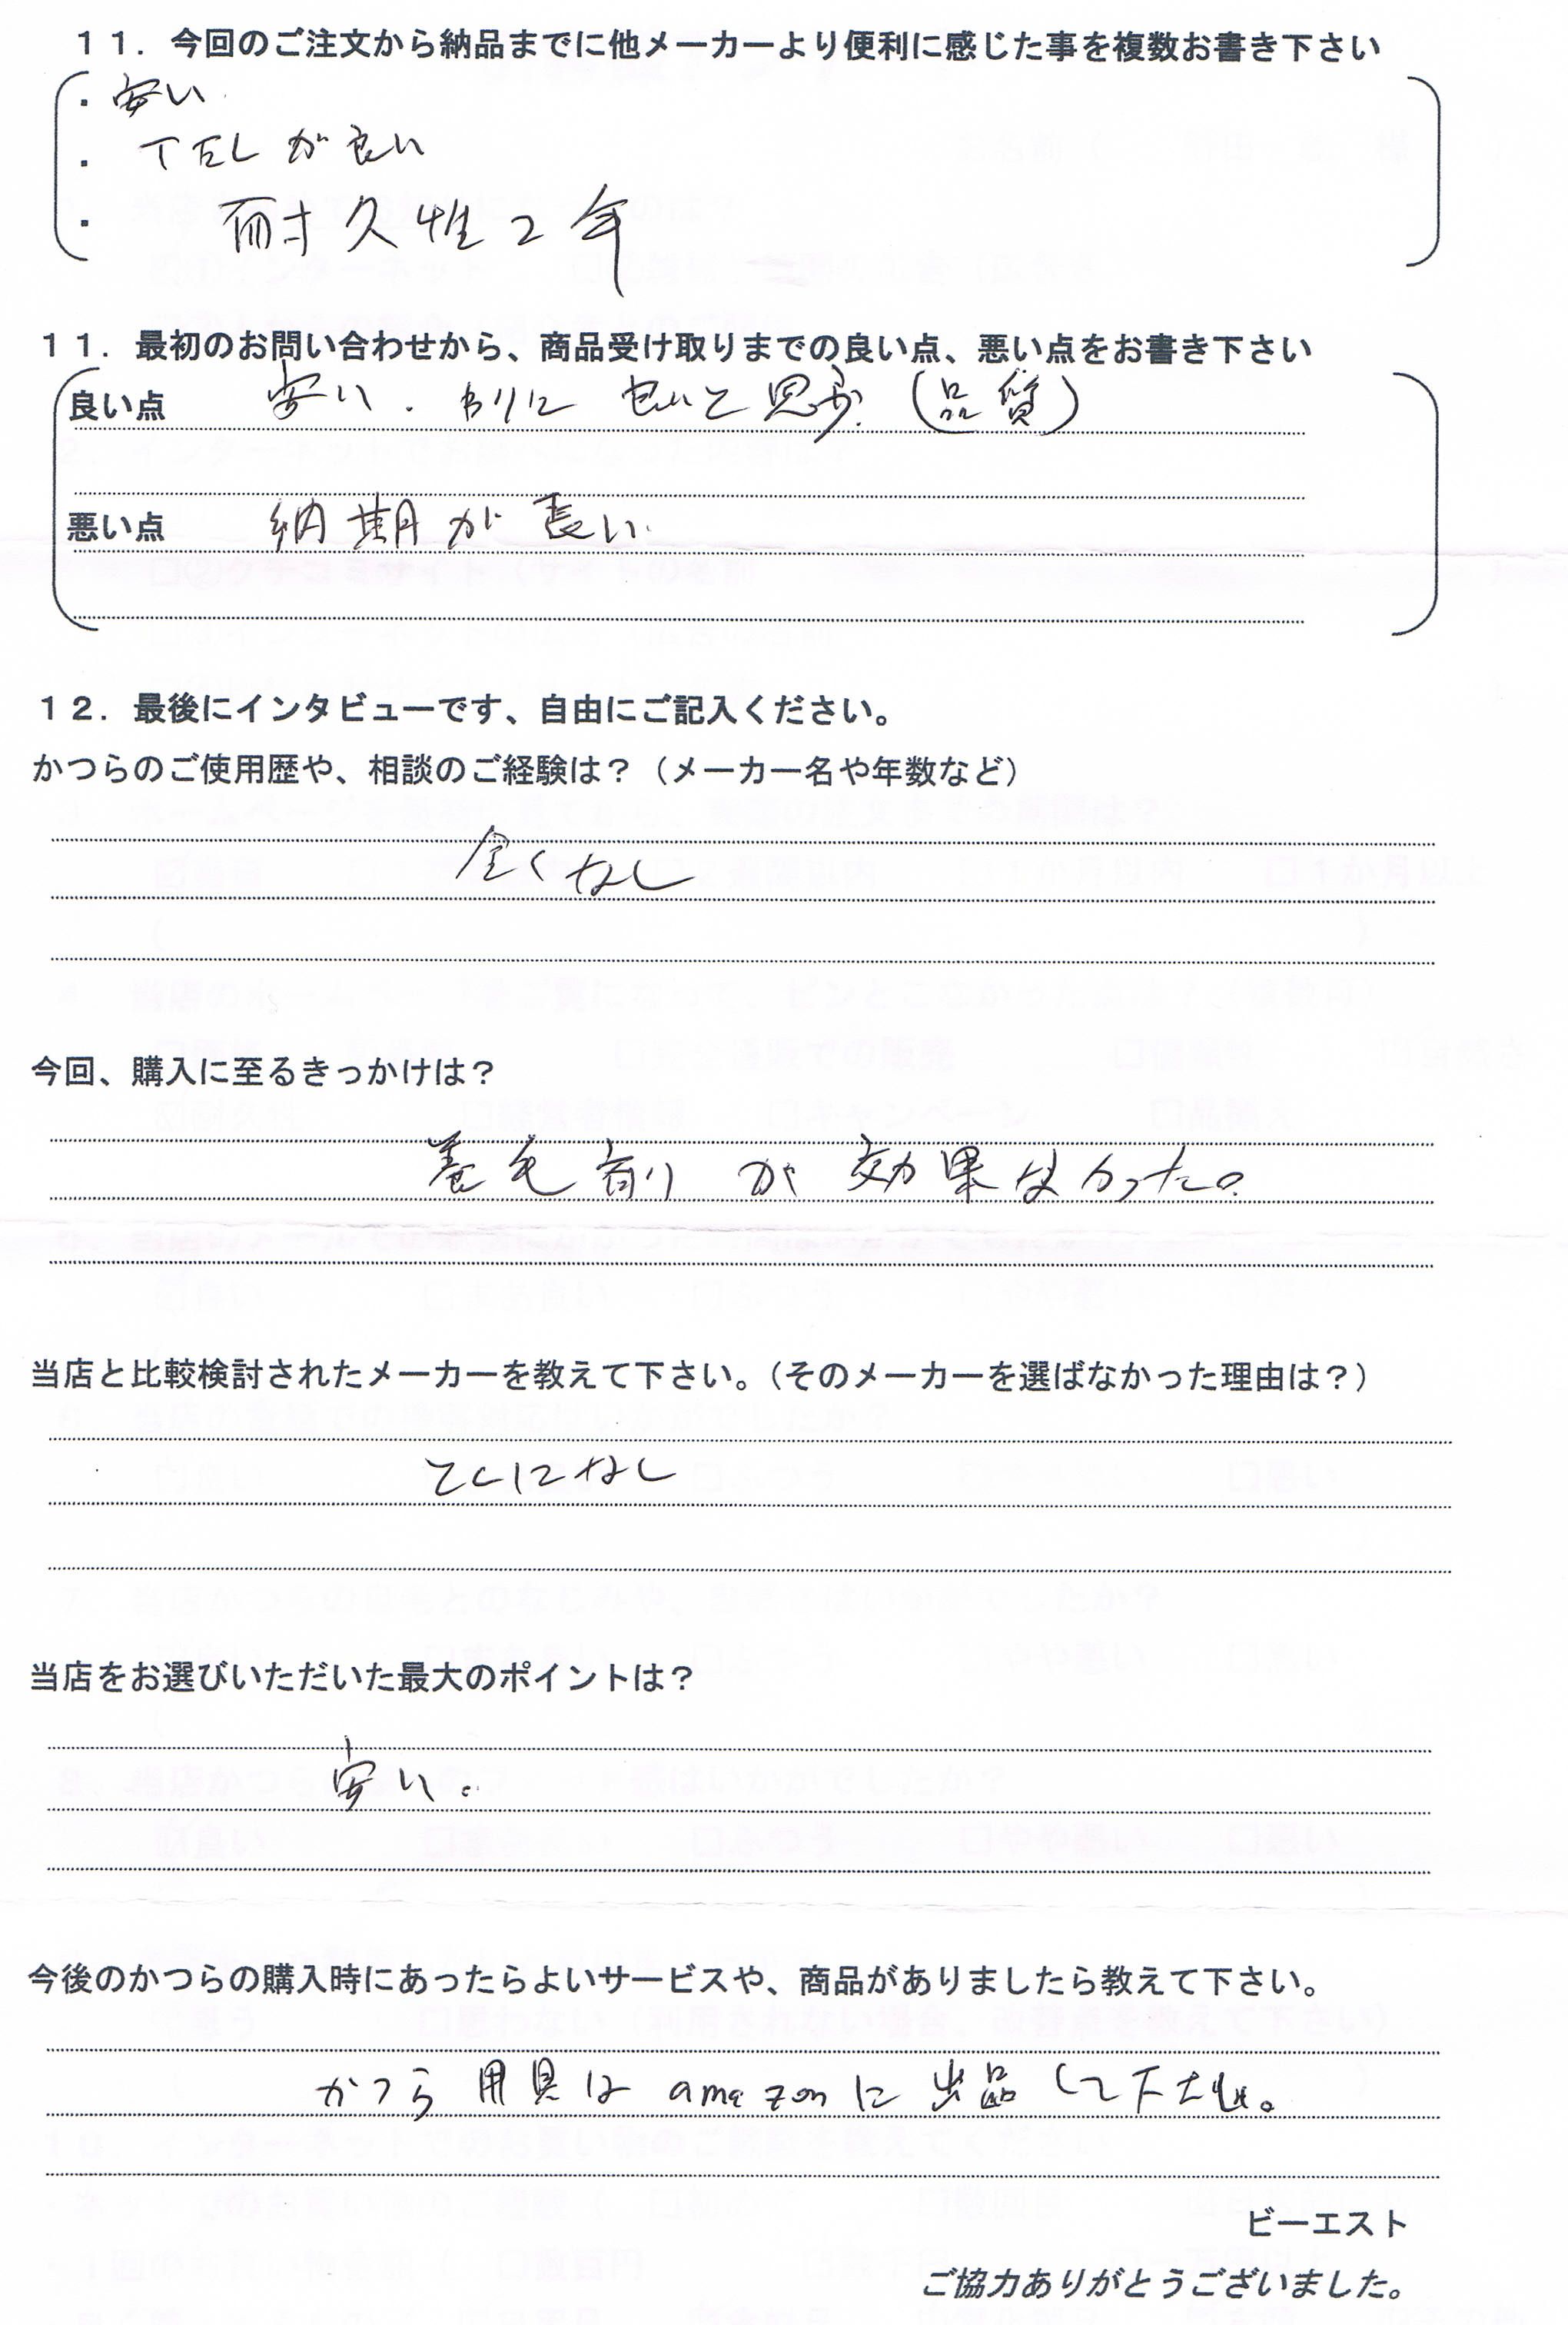 11．今回のご注文から納品までに他メーカーより便利に感じた事を複数お書き下さい
・安い
・TELが良い
・耐久性2年
11．最初のお問い合わせから、商品受け取りまでの良い点、悪い点をお書き下さい
良い点 安い．わりに と思う（品質）
悪い点 納期が長い
12．最後にインタビューです、自由にご記入ください。
かつらのご使用歴や、相談のご経験は？（メーカー名や年数など）
全くなし
今回、購入に至るきっかけは？
養毛剤が効果なかった。
当店と比較検討されたメーカーを教えて下さい。（そのメーカーを選ばなかった理由は？）
とくになし
当店をお選びいただいた最大のポイントは？
安い。
今後のかつらの購入時にあったらよいサービスや、商品がありましたら教えて下さい。
かつら用具はamazonに出品して下さい。
ビーエスト
ご協力ありがとうございました。